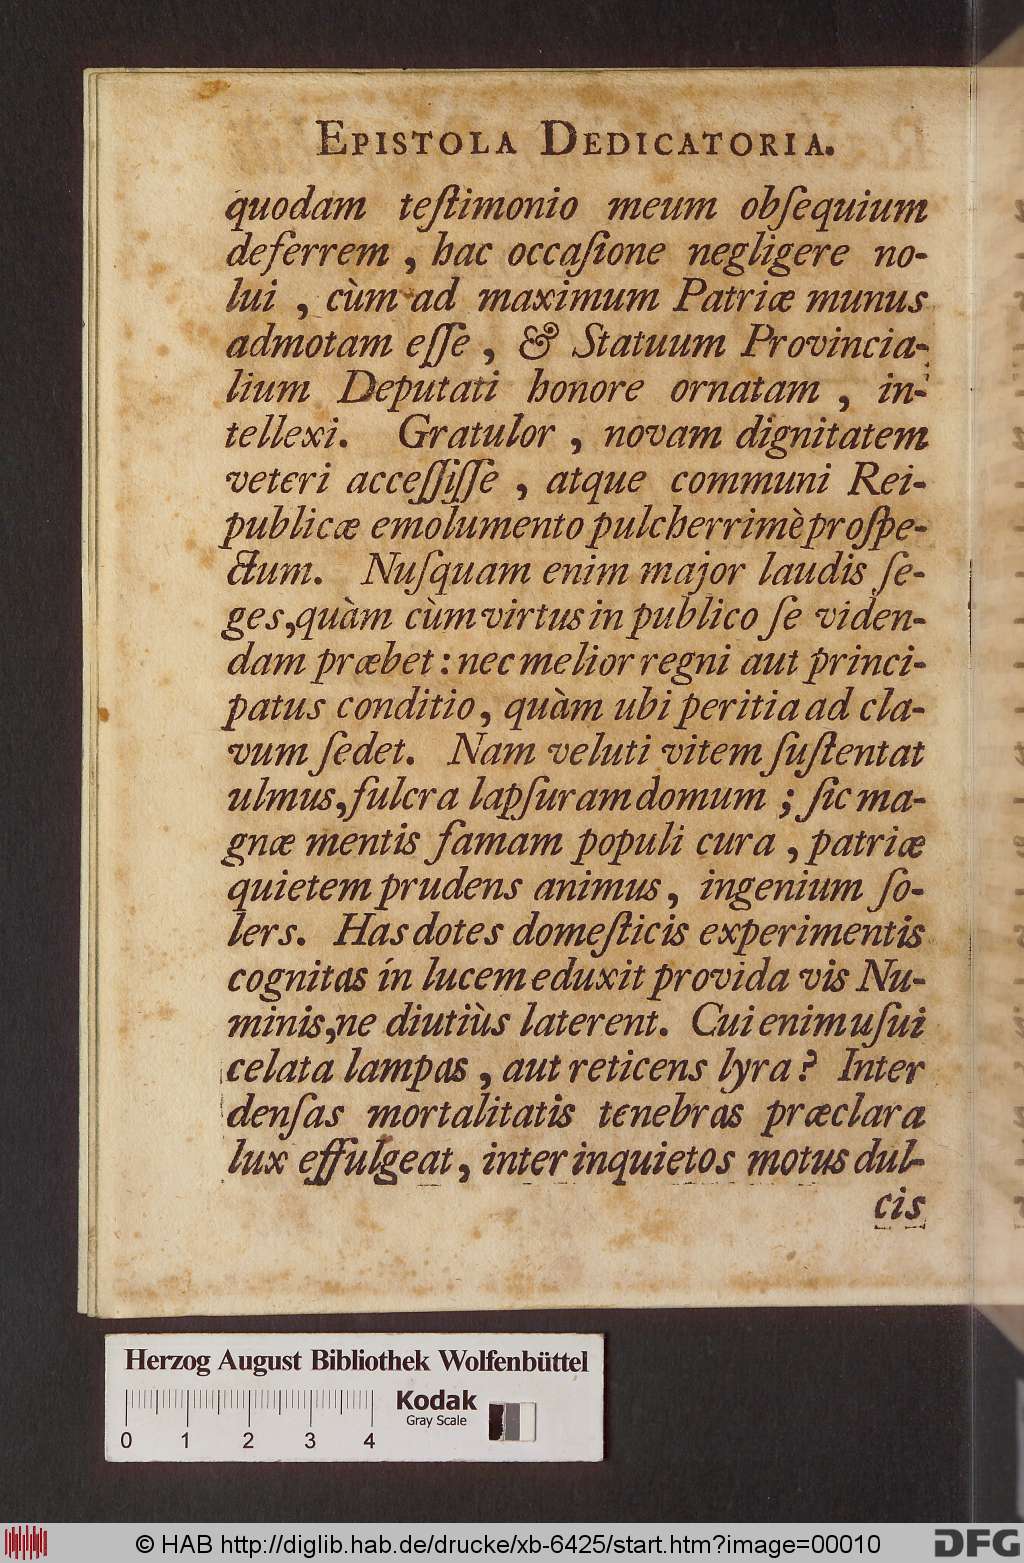 EPISTOLA DEDICATORIA.
quodam teſtimonio meum obſequium
deferrem, hac occaſione negligere no-
lui, cùm ad maximum Patriæ munus
admotam eſſe, & Statuum Provincia-
lium Deputati honore ornatam, in-
tellexi. Gratulor, novam dignitatem
veteri acceſſiſſe, atque communi Rei-
publicæ emolumento pulcherrimè proſpe-
ctum. Nuſquam enim major laudis ſe-
ges, quàm cùm virtus in publico ſe viden-
dam præbet: nec melior regni aut princi-
patus conditio, quàm ubi peritia ad cla-
vum ſedet. Nam veluti vitem ſuſtentat
ulmus, fulcra lapſuram domum; ſic ma-
gnæ mentis famam populi cura, patriæ
quietem prudens animus, ingenium ſo-
lers. Has dotes domeſticis experimentis
cognitas in lucem eduxit provida vis Nu-
minis, ne diutiùs laterent. Cui enim uſui
celata lampas, aut reticens lyra? Inter
denſas mortalitatis tenebras præclara
lux effulgeat, inter inquietos motus dul-
cis
Herzog August Bibliothek Wolfenbüttel
Kodak
Gray Scale
0 1 2 3 4
© HAB http://diglib.hab.de/drucke/xb-6425/start.htm?image=00010
DFG